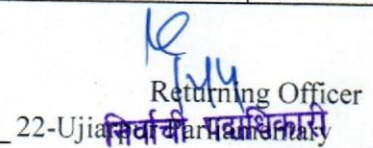 Returning Officer
22-Ujiarpur Parliamentary
निर्वाची पदाधिकारी